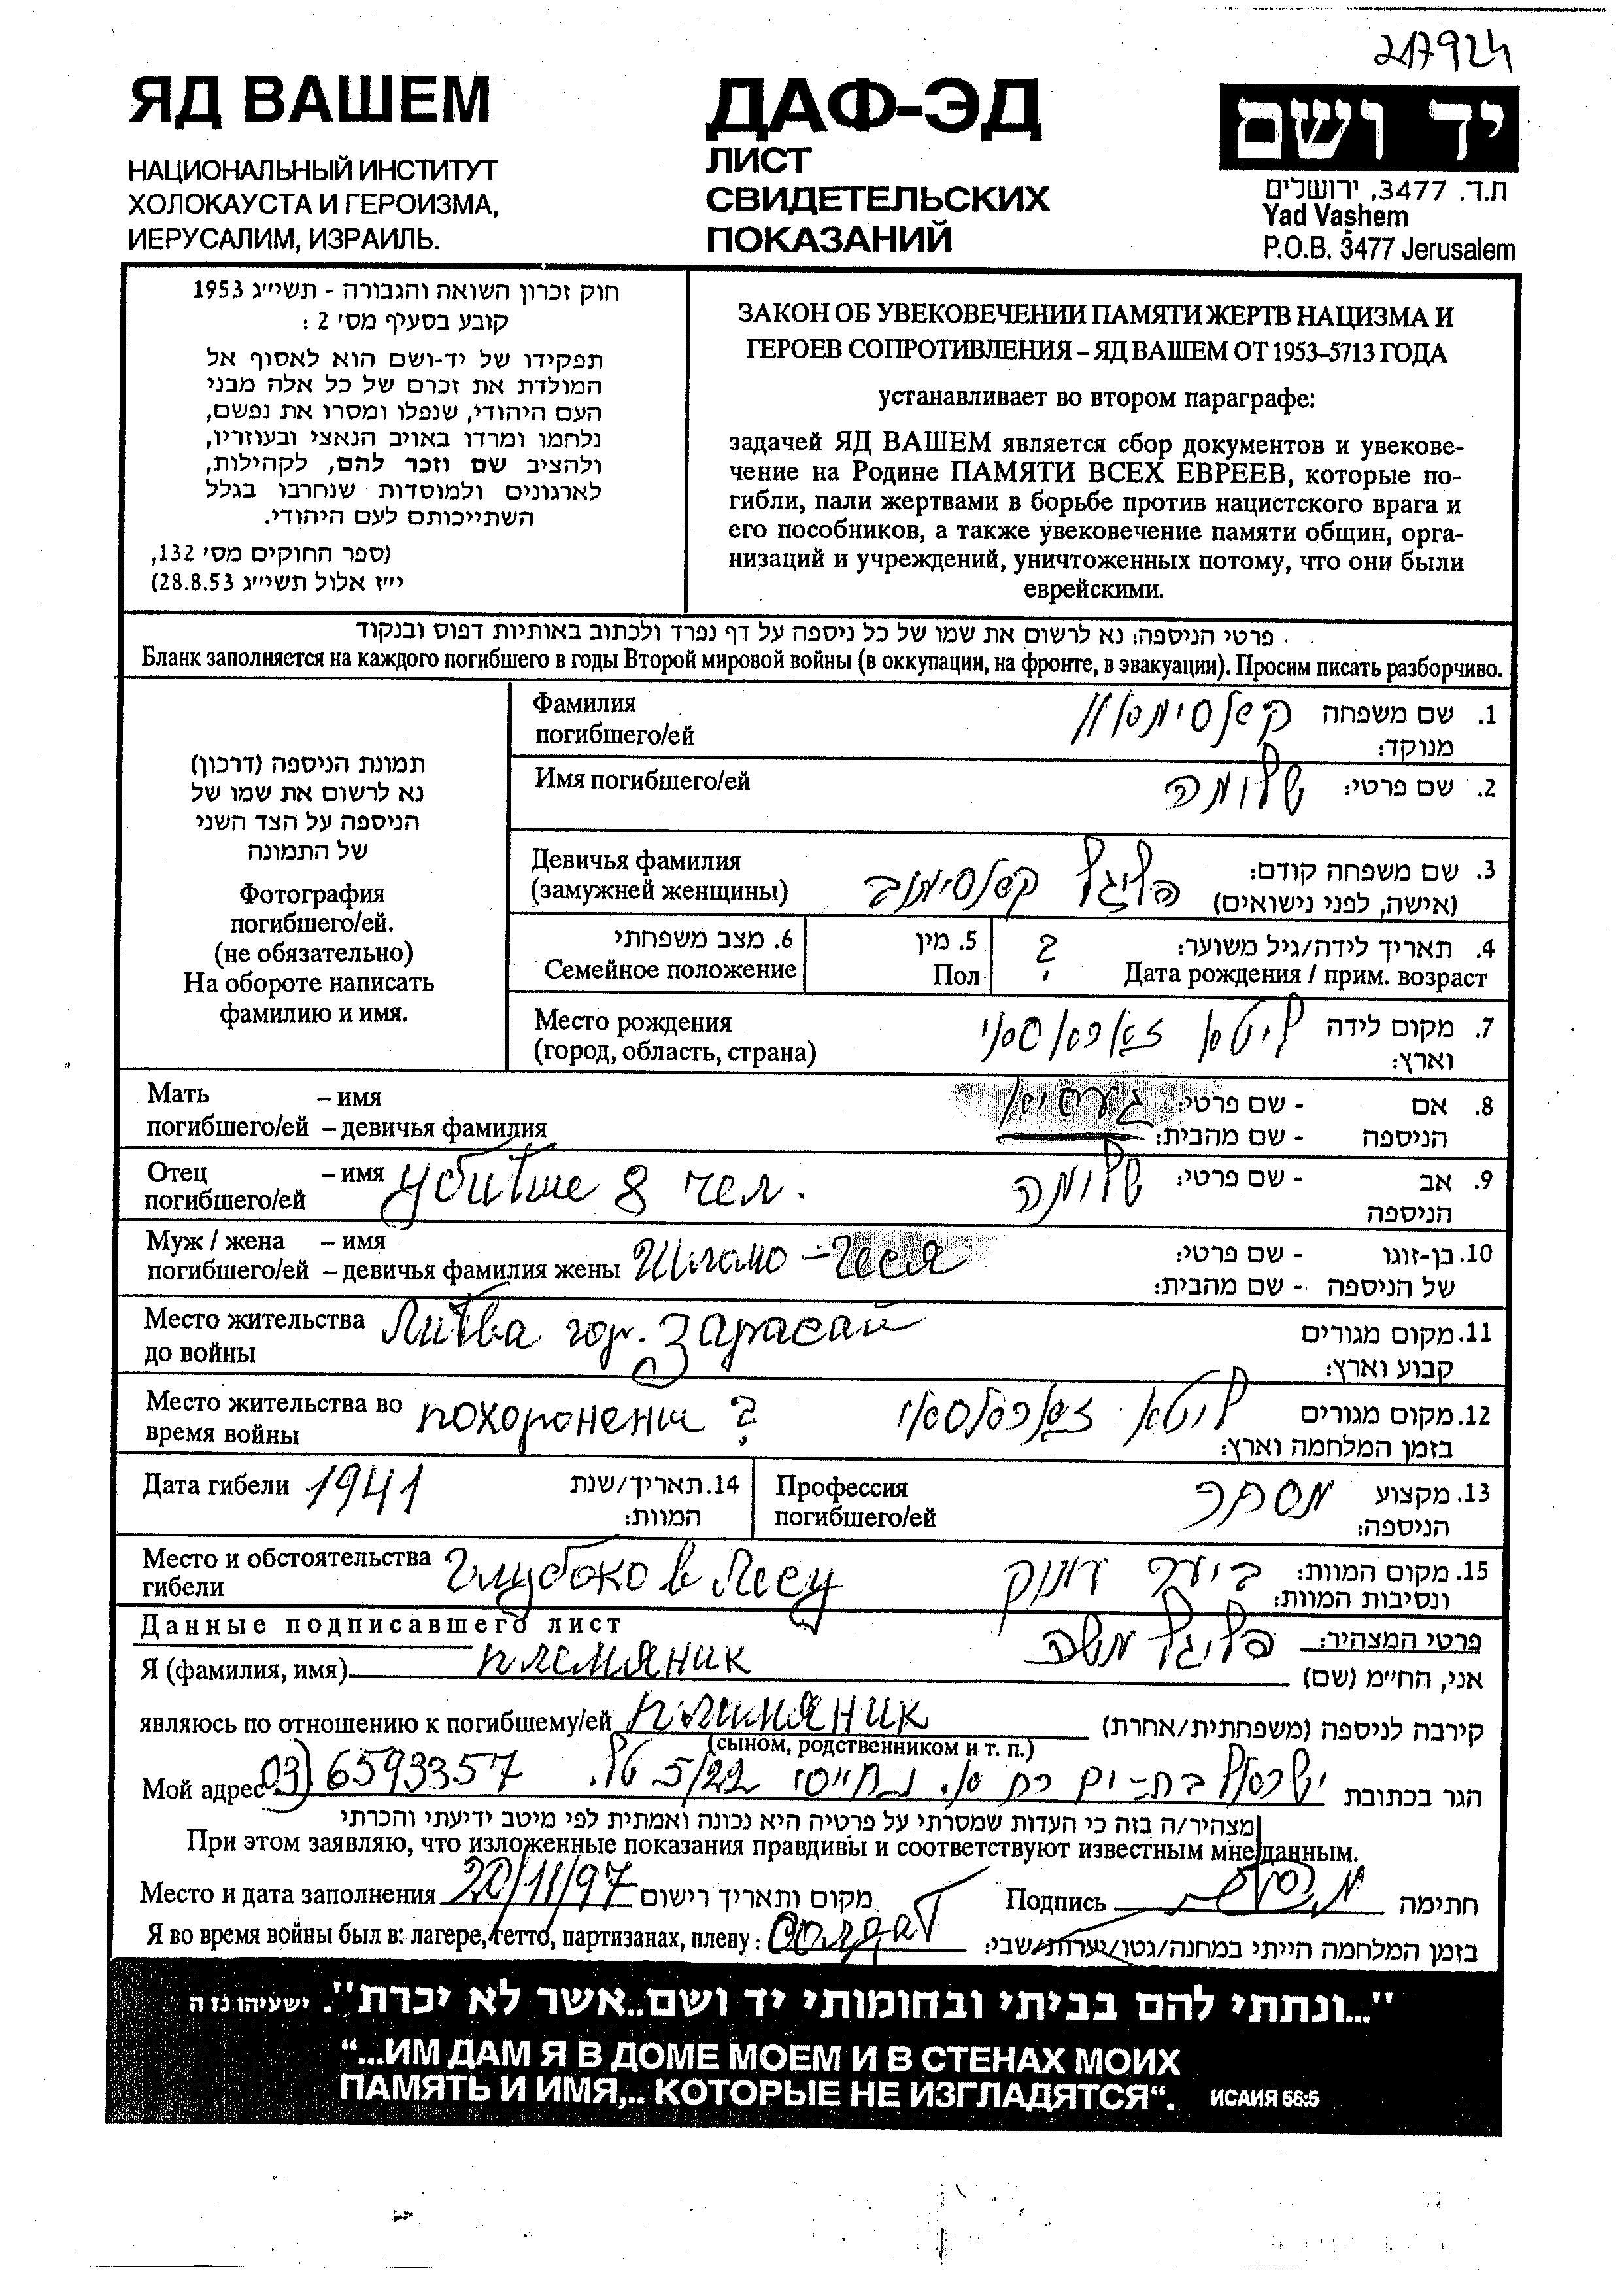 217924
ЯД ВАШЕМ
НАЦИОНАЛЬНЫЙ ИНСТИТУТ
ХОЛОКАУСТА И ГЕРОИЗМА,
ИЕРУСАЛИМ, ИЗРАИЛЬ.
ДАФ-ЭД
ЛИСТ
СВИДЕТЕЛЬСКИХ
ПОКАЗАНИЙ
יד ושם
ת.ד. 3477, ירושלים
Yad Vashem
P.O.B. 3477 Jerusalem
חוק זכרון השואה והגבורה - תשי״ג 1953
קובע בסעיף מס׳ 2 :
תפקידו של יד-ושם הוא לאסוף אל
המולדת את זכרם של כל אלה מבני
העם היהודי, שנפלו ומסרו את נפשם,
נלחמו ומרדו באויב הנאצי ובעוזריו,
ולהציב שם וזכר להם, לקהילות,
לארגונים ולמוסדות שנחרבו בגלל
השתייכותם לעם היהודי.
(ספר החוקים מס׳ 132,
י״ז אלול תשי״ג 28.8.53)
ЗАКОН ОБ УВЕКОВЕЧЕНИИ ПАМЯТИ ЖЕРТВ НАЦИЗМА И
ГЕРОЕВ СОПРОТИВЛЕНИЯ – ЯД ВАШЕМ ОТ 1953–5713 ГОДА
устанавливает во втором параграфе:
задачей ЯД ВАШЕМ является сбор документов и увекове-
чение на Родине ПАМЯТИ ВСЕХ ЕВРЕЕВ, которые по-
гибли, пали жертвами в борьбе против нацистского врага и
его пособников, а также увековечение памяти общин, орга-
низаций и учреждений, уничтоженных потому, что они были
еврейскими.
פרטי הניספה: נא לרשום את שמו של כל ניספה על דף נפרד ולכתוב באותיות דפוס ובנקוד
Бланк заполняется на каждого погибшего в годы Второй мировой войны (в оккупации, на фронте, в эвакуации). Просим писать разборчиво.
תמונת הניספה (דרכון)
נא לרשום את שמו של
הניספה על הצד השני
של התמונה
Фотография
погибшего/ей.
(не обязательно)
На обороте написать
фамилию и имя.
Фамилия
погибшего/ей
1. שם משפחה
מנוקד:
Имя погибшего/ей
2. שם פרטי: שלומה
Девичья фамилия
(замужней женщины)
3. שם משפחה קודם:
(אישה, לפני נישואים)
6. מצב משפחתי
Семейное положение
5. מין
Пол
4. תאריך לידה/גיל משוער: ?
Дата рождения / прим. возраст
Место рождения
(город, область, страна)
7. מקום לידה
וארץ: ליטא
Мать – имя
погибшего/ей – девичья фамилия
8. אם - שם פרטי:
הניספה - שם מהבית:
Отец – имя убитые 8 чел.
погибшего/ей
9. אב - שם פרטי: שלומה
הניספה
Муж / жена – имя
погибшего/ей – девичья фамилия жены Шломо – Геся
10. בן-זוגו - שם פרטי:
של הניספה - שם מהבית:
Место жительства Литва гор. Зарасай
до войны
11. מקום מגורים
קבוע וארץ:
Место жительства во похоронены ?
время войны
12. מקום מגורים ליטא
בזמן המלחמה וארץ:
Дата гибели 1941
14. תאריך/שנת
המוות:
Профессия
погибшего/ей
13. מקצוע
הניספה: מסחר
Место и обстоятельства Глубоко в Лесу
гибели
15. מקום המוות: ביער
ונסיבות המוות:
Данные подписавшего лист
פרטי המצהיר:
Я (фамилия, имя) племяник
אני, החי״מ (שם) פליגל משה
являюсь по отношению к погибшему/ей племяник
(сыном, родственником и т. п.)
קירבה לניספה (משפחתית/אחרת)
Мой адрес 03) 6593357
הגר בכתובת ישראל בת-ים 5/22 טל.
מצהיר/ה בזה כי העדות שמסרתי על פרטיה היא נכונה ואמתית לפי מיטב ידיעתי והכרתי
При этом заявляю, что изложенные показания правдивы и соответствуют известным мне данным.
Место и дата заполнения 20/11/97 מקום ותאריך רישום
Подпись חתימה
Я во время войны был в: лагере, гетто, партизанах, плену: Солдат
בזמן המלחמה הייתי במחנה/גטו/יערות/שבי:
"...ונתתי להם בביתי ובחומותי יד ושם..אשר לא יכרת". ישעיהו נז ה
“...ИМ ДАМ Я В ДОМЕ МОЕМ И В СТЕНАХ МОИХ
ПАМЯТЬ И ИМЯ,.. КОТОРЫЕ НЕ ИЗГЛАДЯТСЯ“. ИСАИЯ 56:5